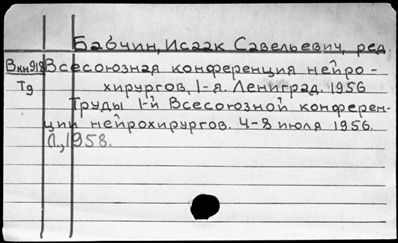 Бабчин, Исаак Савельевич, ред.
Вкн918 Всесоюзная конференция нейро-
Тд хирургов, 1-я. Ленинград. 1956
Труды 1-й Всесоюзной конферен-
ции нейрохирургов. 4-8 июля 1956.
Л., 1958.